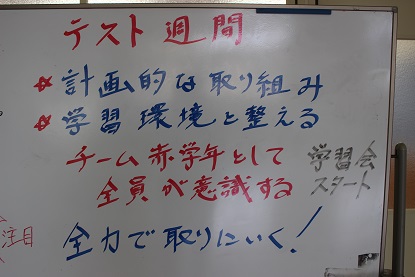 テスト週間
☆計画的な取り組み
☆学習環境と整える
チーム赤学年として
全員が意識する
学習会
スタート
注目
全力で取りにいく!